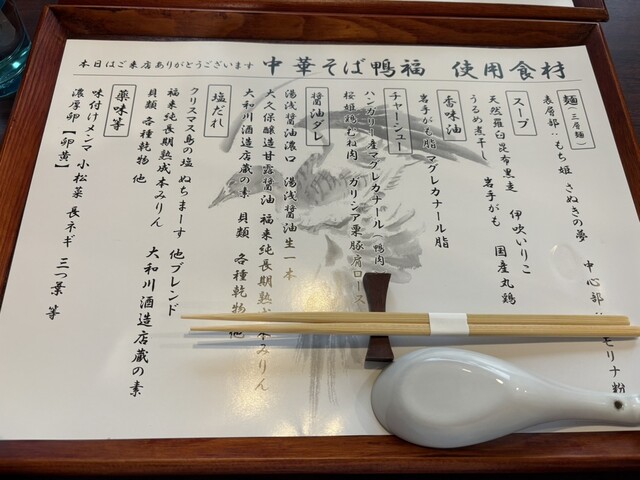 本日はご来店ありがとうございます 中華そば鴨福 使用食材
麺（三層麺）
表層部：もち姫 さぬきの夢 中心部 モリナ粉
スープ
天然羅臼昆布黒走 伊吹いりこ
うるめ煮干し 岩手がも 国産丸鶏
香味油
岩手がも脂 マグレカナール脂
チャーシュー
ハンガリー産マグレカナール（鴨肉
桜姫鶏むね肉 ガリシア栗豚肩ロース
醤油ダレ
湯浅醤油濃口 湯浅醤油生一本
大久保醸造甘露醤油 福来純長期熟成本みりん
大和川酒造店蔵の素 貝類 各種乾物 他
塩だれ
クリスマス島の塩 ぬちまーす 他ブレンド
福来純長期熟成本みりん 大和川酒造店蔵の素
貝類 各種乾物 他
薬味等
味付けメンマ 小松菜 長ネギ 三つ葉 等
濃厚卵【卯黄】